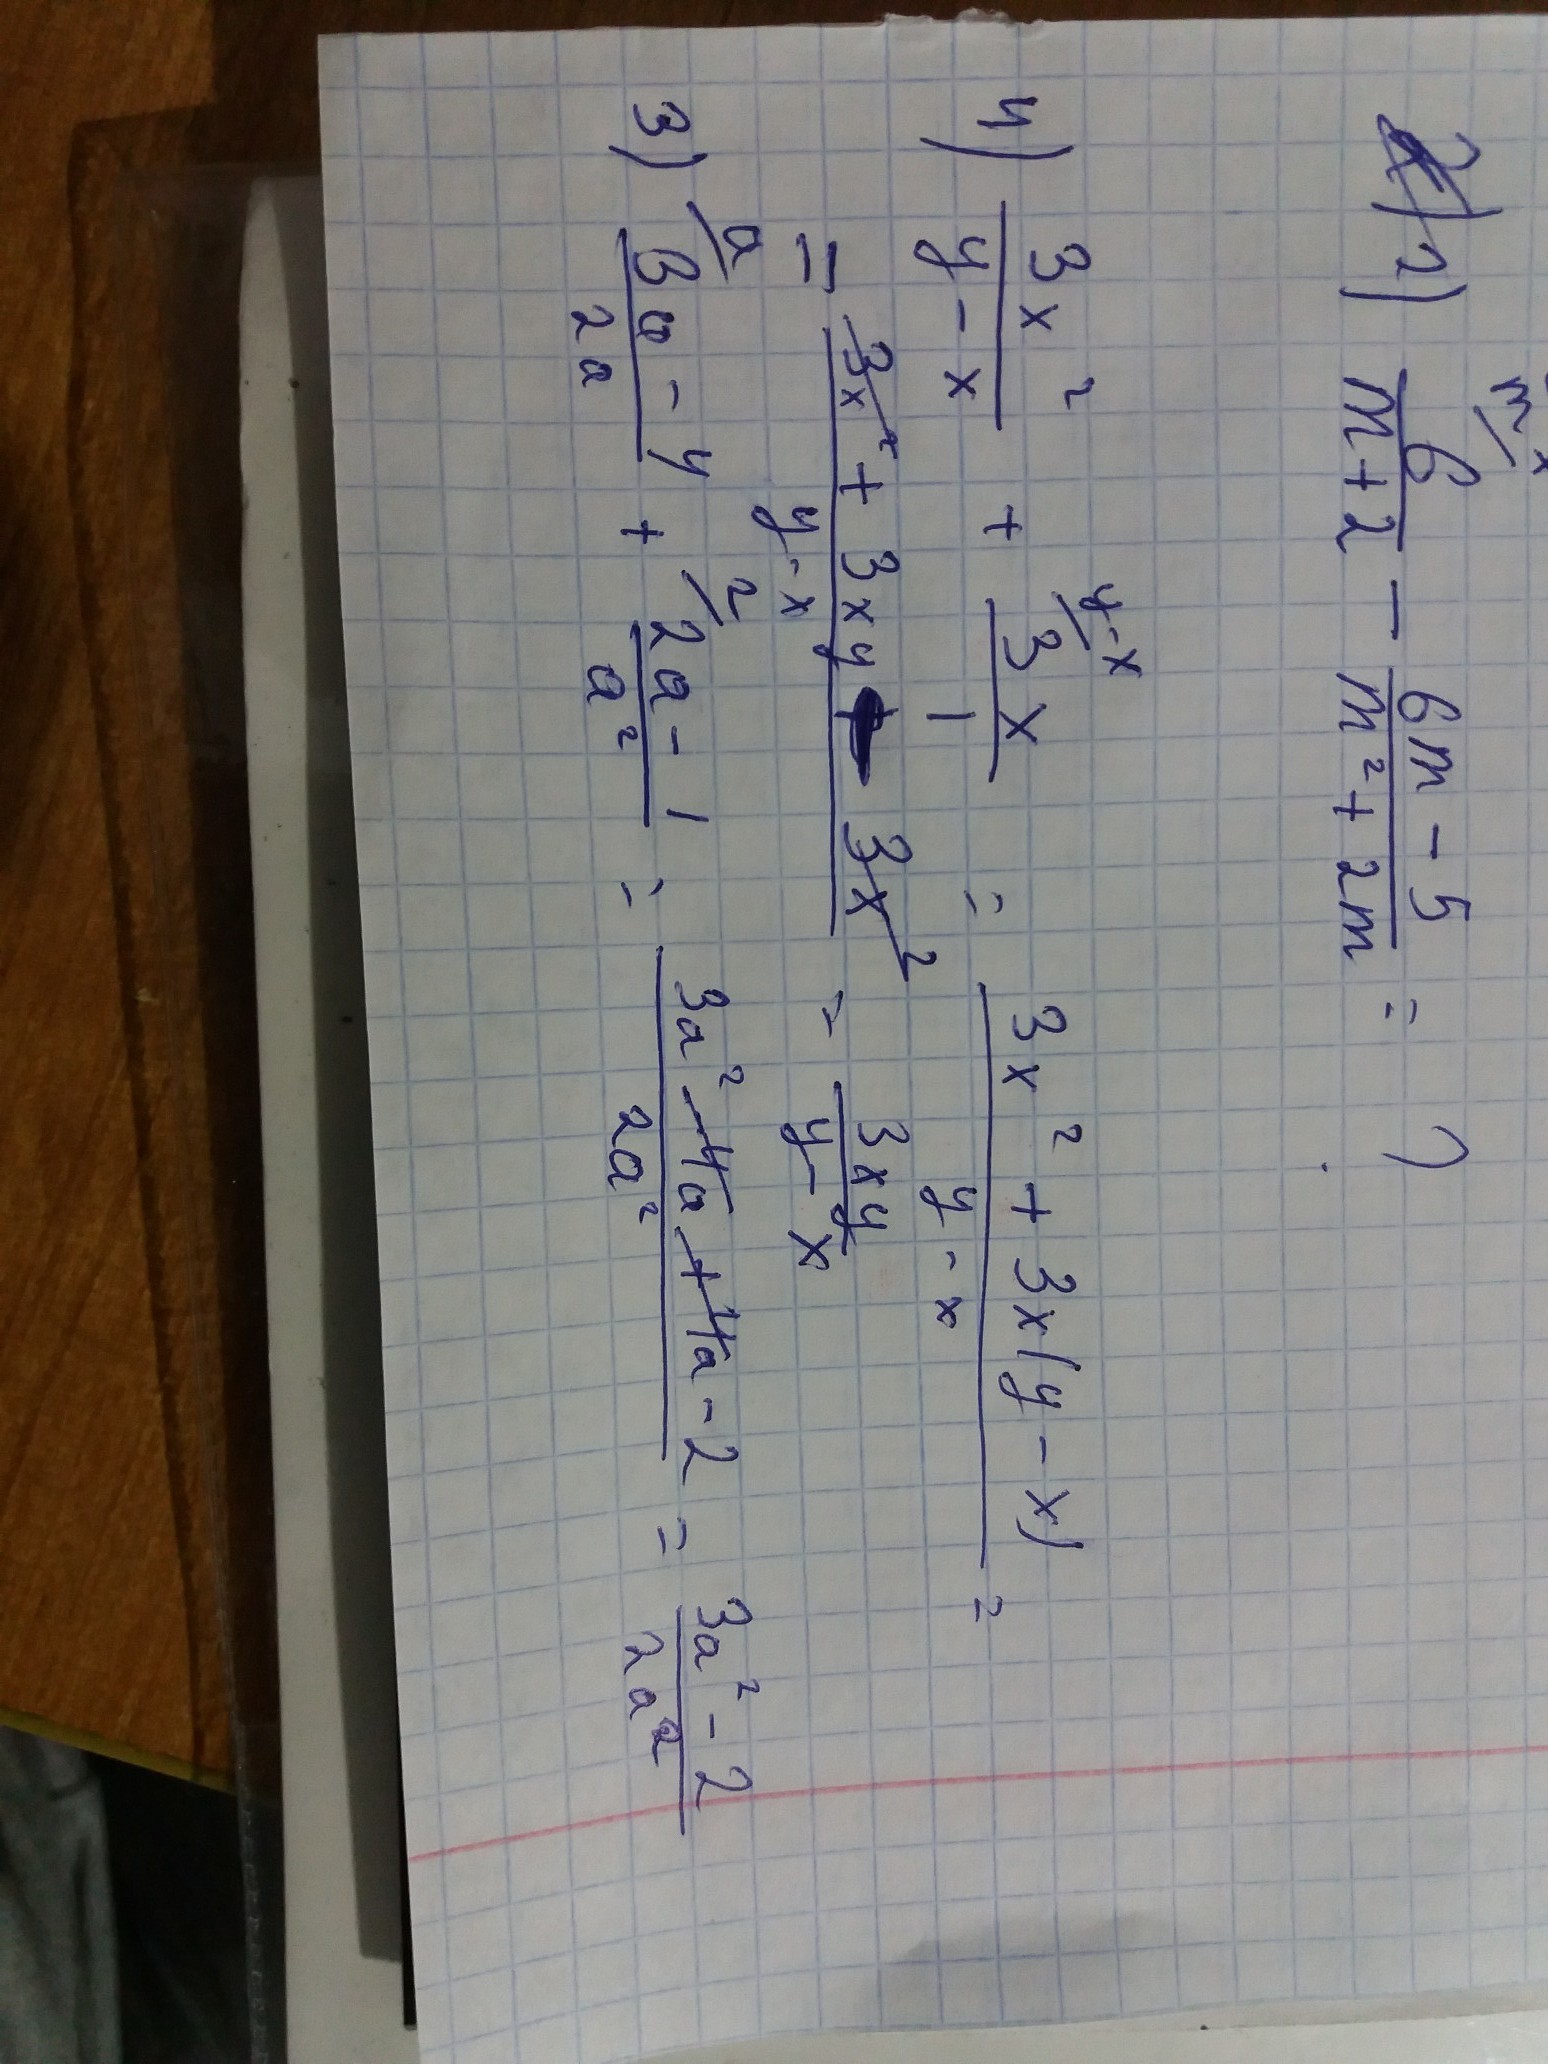 2) 6/(m+2) - (6m-5)/(m²+2m) = ?
m
4) 3x²/(y-x) + 3x/1 = (3x²+3x(y-x))/(y-x) =
y-x
= (3x²+3xy-3x²)/(y-x) = 3xy/(y-x)
3) (3a-4)/2a + (2a-1)/a² = (3a²-4a+4a-2)/2a² = (3a²-2)/2a²
a 2